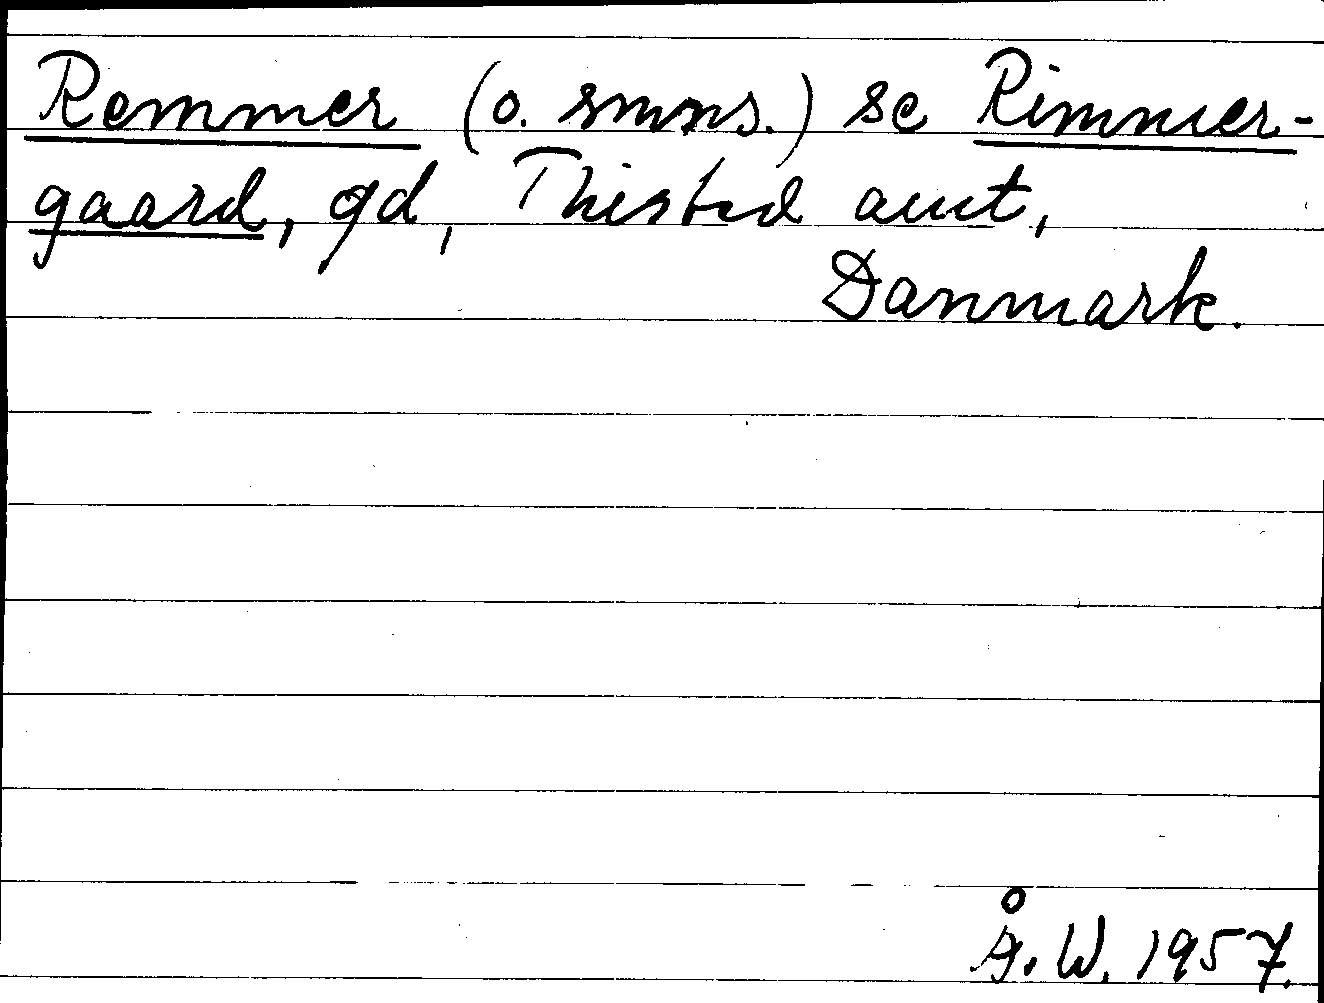 Remmer (o. smns.) se Rimmer-
gaard, gd, Thisted amt,
Danmark.
Å. W. 1957.